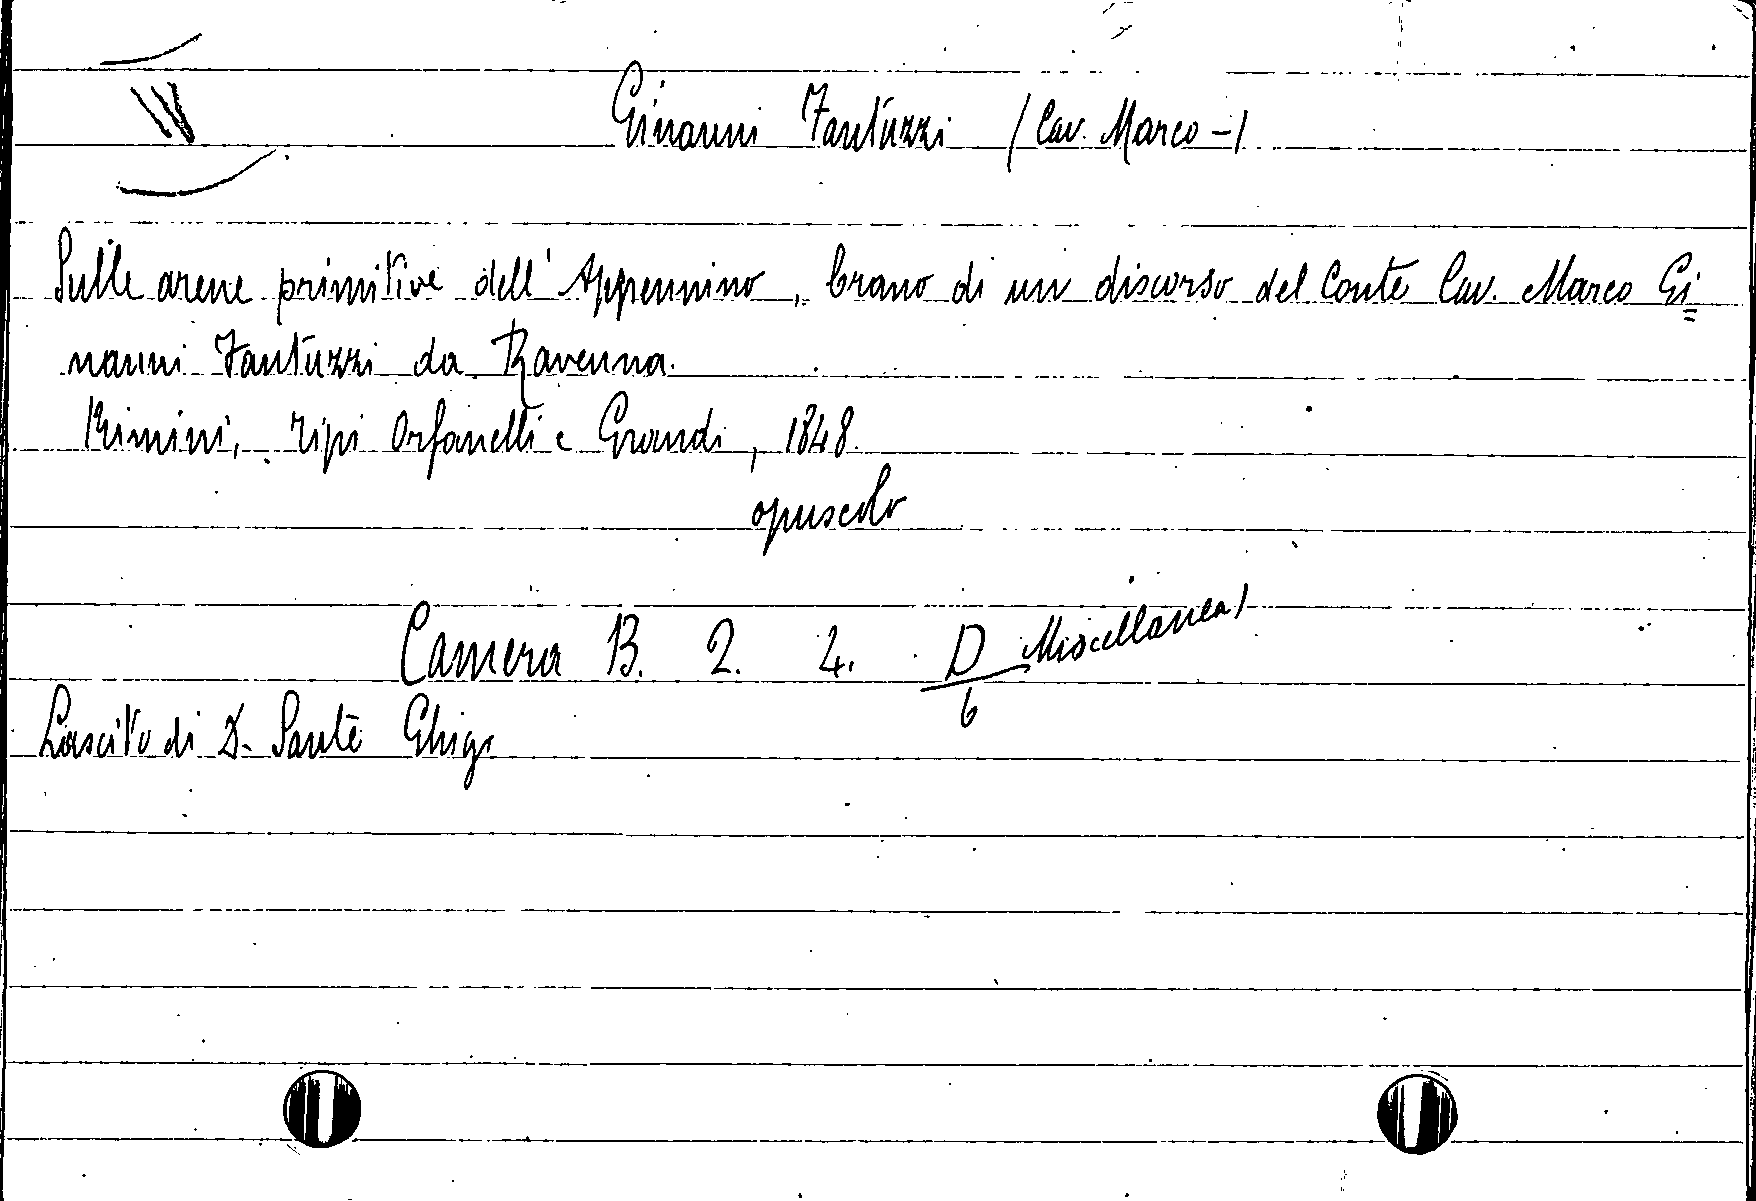 Ginanni Fantuzzi (Cav. Marco -)
Sulle arene primitive dell'Appennino, brano di un discorso del Conte Cav. Marco Gi=
nanni Fantuzzi da Ravenna.
Rimini, tipi Orfanelli e Grandi, 1848.
opuscolo
Camera B. 2. 4. D/6 Miscellanea)
Lascito di D. Sante Ghigi